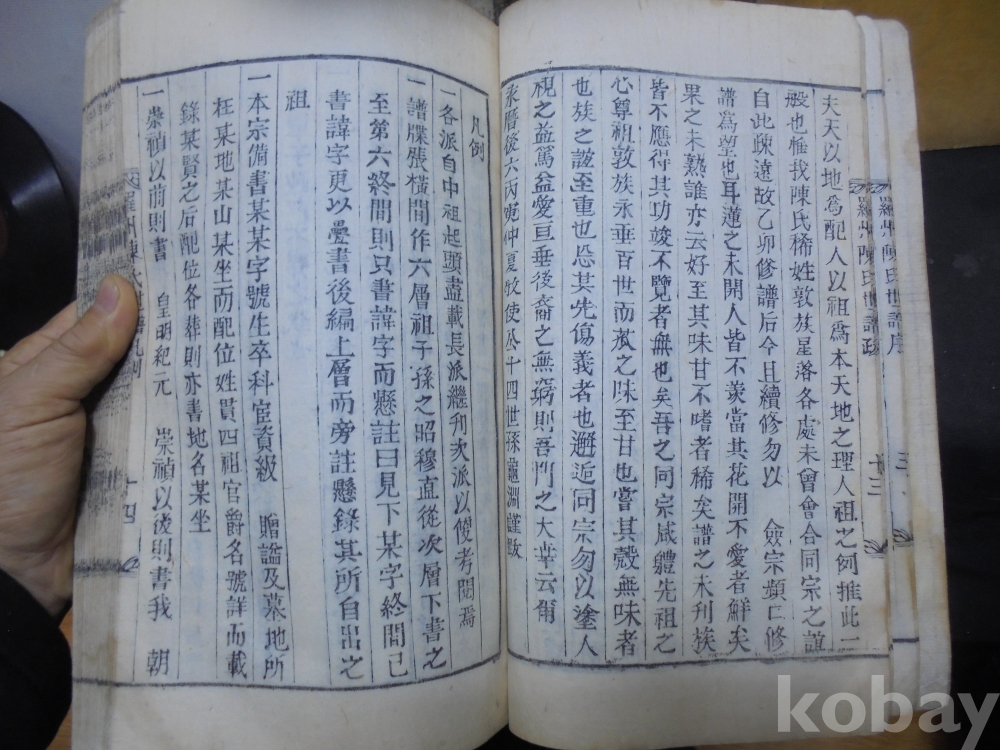 羅州陳氏世譜序
三
羅州陳氏世譜跋
十三
夫天以地爲配人以祖爲本天地之理人祖之例推此二
般也惟我陳氏稀姓敦族星落各處未曾會合同宗之誼
自此疎遠故乙卯修譜后今且續修勿以 僉宗頻亡修
譜爲望也耳蓮之未開人皆不羨當其花開不愛者鮮矣
果之未熟誰亦云好至其味甘不嗜者稀矣譜之未刊族
皆不應得其功竣不覽者無也矣吾之同宗咸軆先祖之
心尊祖敦族永垂百世而蓏之味至甘也嘗其殼無味者
也族之誼至重也忘其先傷義者也邂近同宗勿以塗人
視之益篤益愛亘垂後裔之無窮則吾門之大幸云爾
永曆後六丙 仲夏牧使公十四世孫龜淵謹跋
凡例
一各派自中祖起頭盡載長派繼刊次派以便考閱焉
一譜牒張横間作六層祖子孫之昭穆直從次層下書之
至第六終間則只書諱字而懸註曰見下某字終間已
書諱字更以疊書後編上層而旁註懸錄其所自出之
祖
一本宗備書某某字號生卒科宦資級 贈謚及墓地所
在某地某山某坐而配位姓貫四祖官爵名號詳而載
錄某賢之后配位各葬則亦書地名某坐
一崇禎以前則書 皇明紀元 崇禎以後則書我 朝
十四
kobay